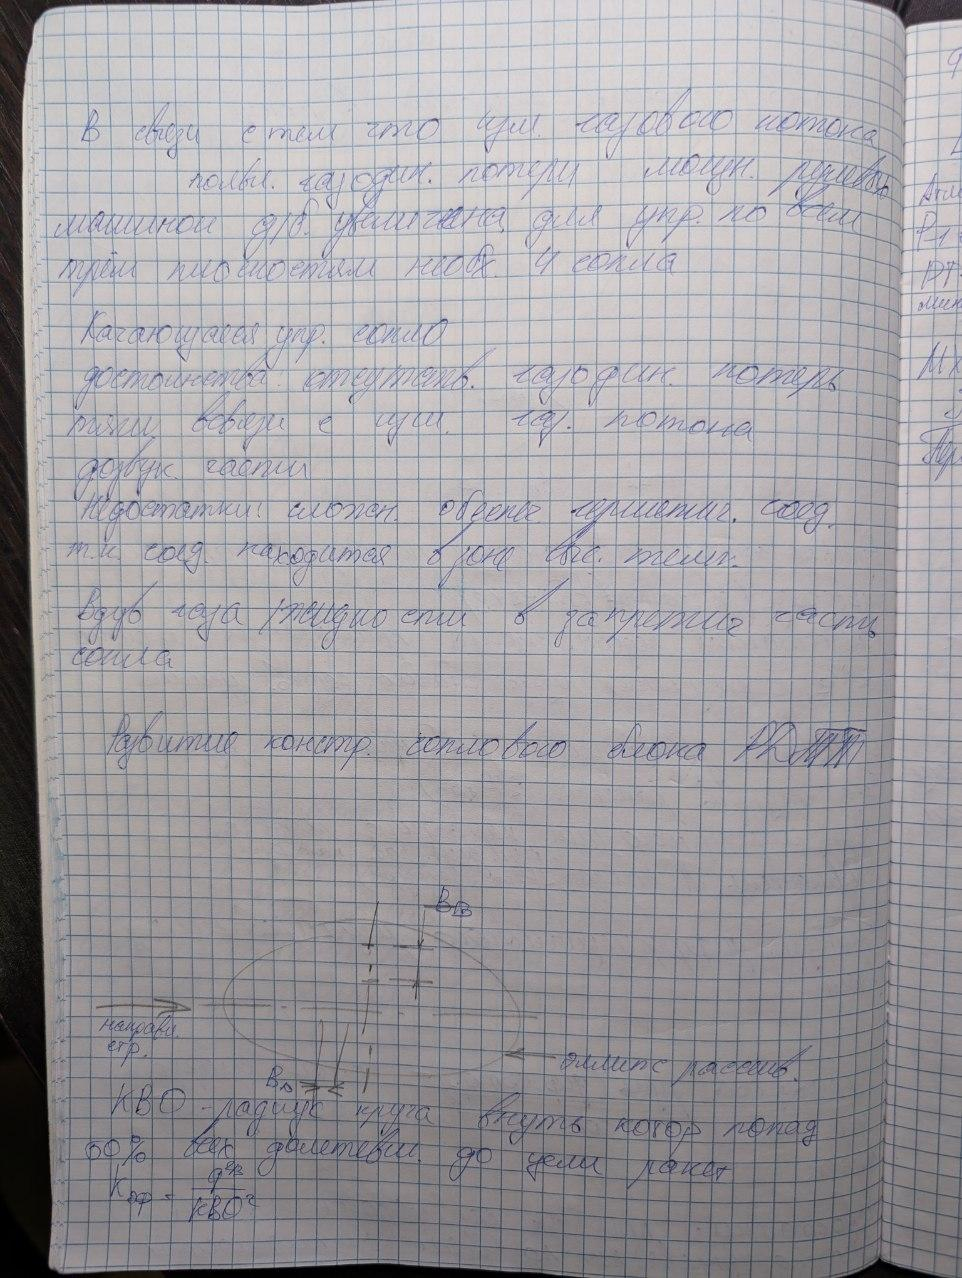 В связи с тем что изм. газового потока
появл. газодин. потери мощн. рулевых
машинок д/б. увеличена, для упр. по всем
трём плоскостям необх. 4 сопла
Качающееся упр. сопло
достоинства: отсутств. газодин. потерь
тяги в связи с изм. газ. потока
дозвук. части
Недостатки: сложн. обеспеч герметич. соед.
т.к. соед. находится в зоне выс. темп.
Вдув газа/жидкости в закритич части
сопла
Развитие констр. соплового блока РДТТ
Вб
направл.
стр.
эллипс рассеив.
Вд
КВО - радиус круга внутрь котор попад
50% всех долетевш. до цели ракет
Kэф = q^2/3 / КВО²
Атм
МХ